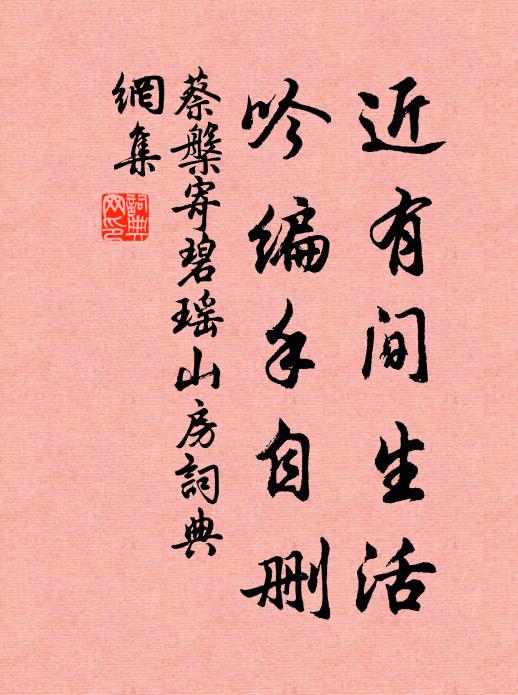 近有间生活
吟编手自删
蔡槃寄碧瑶山房詞典
網集
詞典
网印